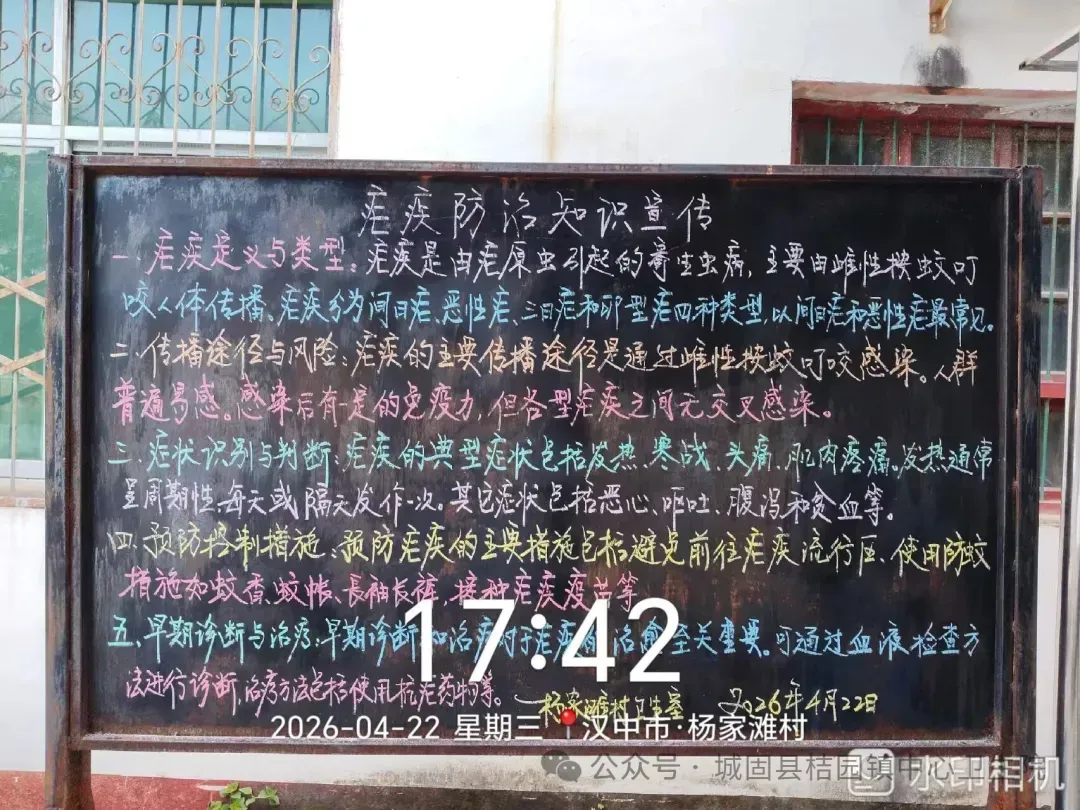 疟疾防治知识宣传
一、疟疾定义与类型：疟疾是由疟原虫引起的寄生虫病，主要由雌性按蚊叮
咬人体传播、疟疾分为间日疟、恶性疟、三日疟和卵型疟四种类型，以间日疟和恶性疟最常见。
二、传播途径与风险：疟疾的主要传播途径是通过雌性按蚊叮咬感染。人群
普遍易感。感染后有一定的免疫力，但各型疟疾之间无交叉感染。
三、症状识别与判断：疟疾的典型症状包括发热、寒战、头痛、肌肉疼痛。发热通常
呈周期性，每天或隔天发作一次。其它症状包括恶心、呕吐、腹泻和贫血等。
四、预防控制措施：预防疟疾的主要措施包括避免前往疟疾流行区、使用防蚊
措施如蚊香、蚊帐、长袖长裤，接种疟疾疫苗等
五、早期诊断与治疗：早期诊断和治疗对于疟疾的治愈至关重要。可通过血液检查方
法进行诊断，治疗方法包括使用抗疟药物等。
杨家滩村卫生室 2026年4月22日
17:42
2026-04-22 星期三 汉中市·杨家滩村
公众号·城固县桔园镇中心卫
水印相机